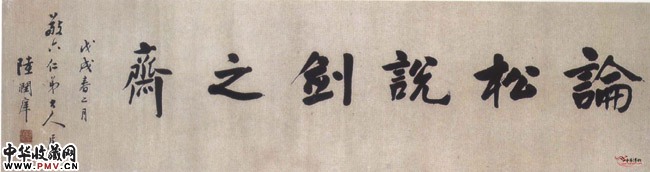 論松說劍之齋
戊戌春二月
六仁弟大人
陸潤庠
中华收藏网
www.PMV.CN